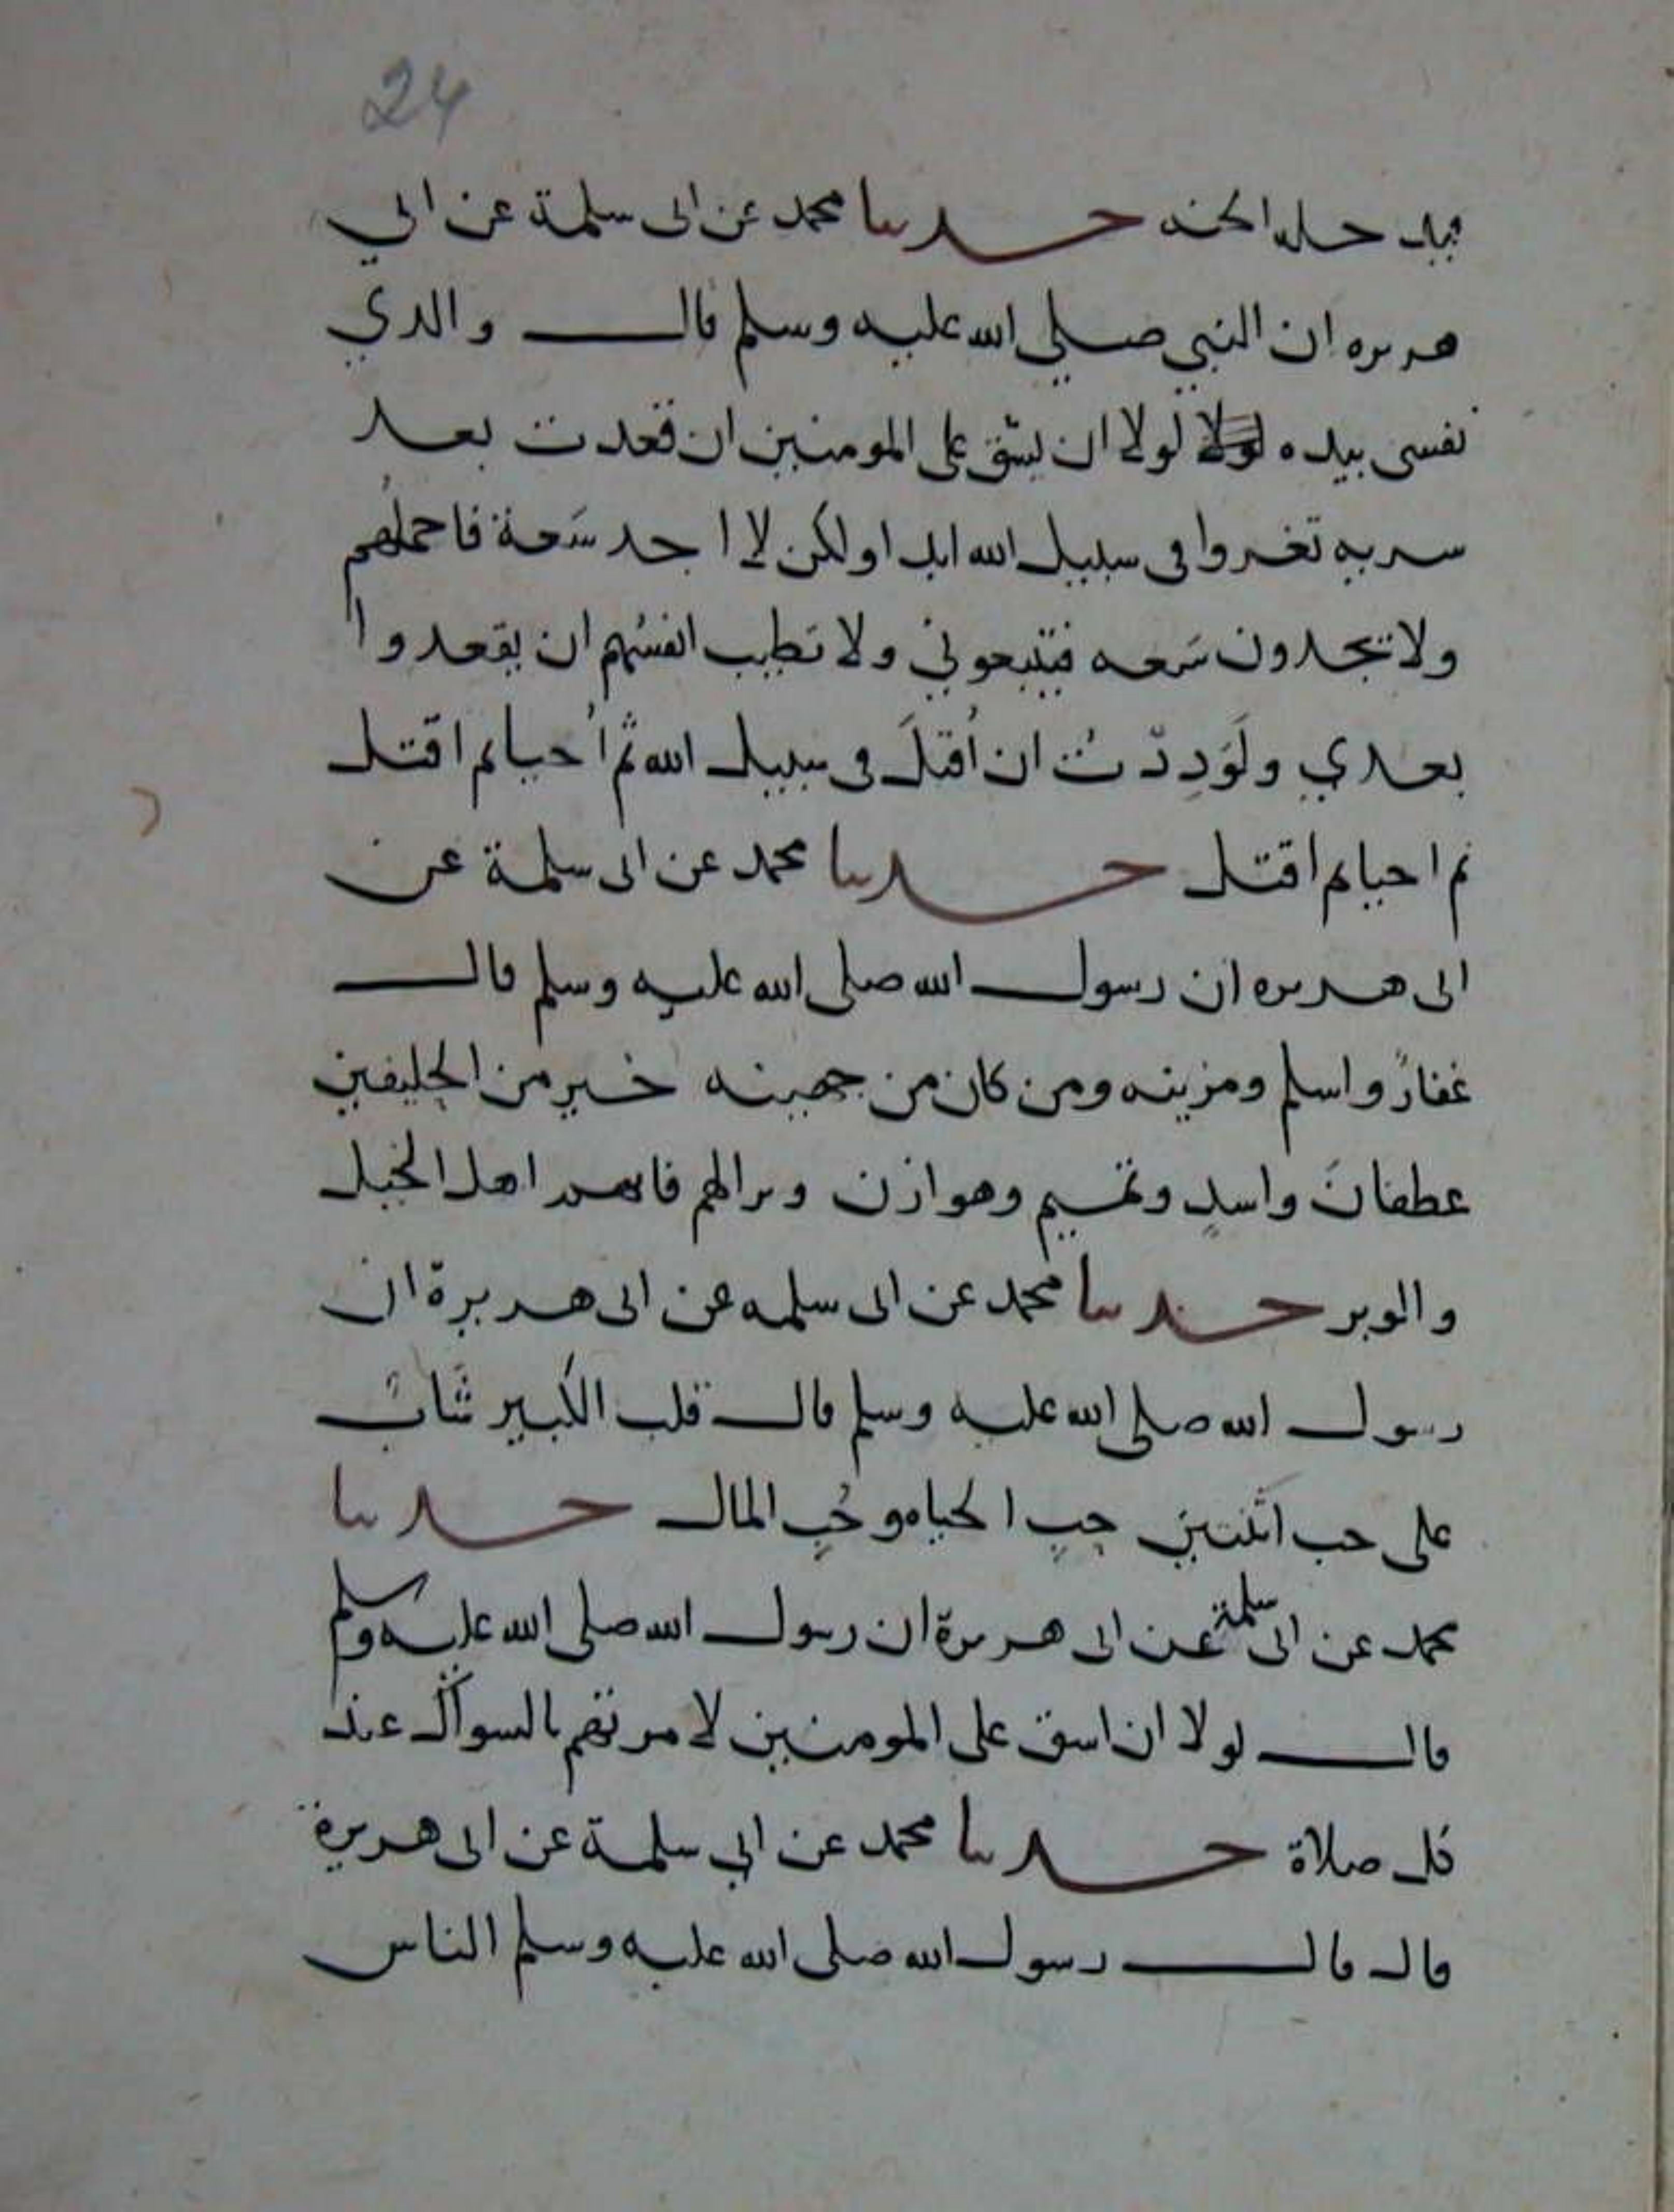 24
حدثنا محمد عن ابى سلمة عن ابي
هريره ان النبي صلي الله عليه وسلم قال والدي
نفسى بيده لولا لولا ان يشق على المومنين ان قعدت بعد
سريه تغروا فى سبيل الله ابدا ولكن لا اجد سَعة فاحملُهم
ولا تجدون سَعه فيتبعوني ولا تطيب انفسُهم ان يقعدوا
بعدي ولَوَدِدّتُ ان اُقتلَ فى سبيل الله ثم اُحيا ثم اقتل
ثم احيا ثم اقتل حدثنا محمد عن ابى سلمة عن
ابى هريره ان رسول الله صلى الله عليه وسلم قال
غفارٌ واسلم ومزينه ومن كان من جهينه خير من الحليفين
عطفانَ واسدٍ وتميم وهوازن اهل الخيل
والوبر حدثنا محمد عن ابى سلمه عن ابى هريرة ان
رسول الله صلى الله عليه وسلم قال قلب الكبير شَابٌ
على حب اثنتين حبِ الحياه وحُبِ المال حدثنا
محمد عن ابى سلمة عن ابى هريرة ان رسول الله صلى الله عليه وسلم
قال لولا ان اسق على المومنين لامرتهم بالسواك عند
كل صلاة حدثنا محمد عن ابي سلمة عن ابى هريرة
قال قال رسول الله صلى الله عليه وسلم الناس